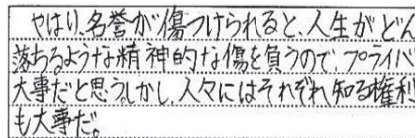 やはり、名誉が傷つけられると、人生がどん
落ちるような精神的な傷を負うので、プライバ
大事だと思う。しかし、人々にはそれぞれ知る権利
も大事だ。